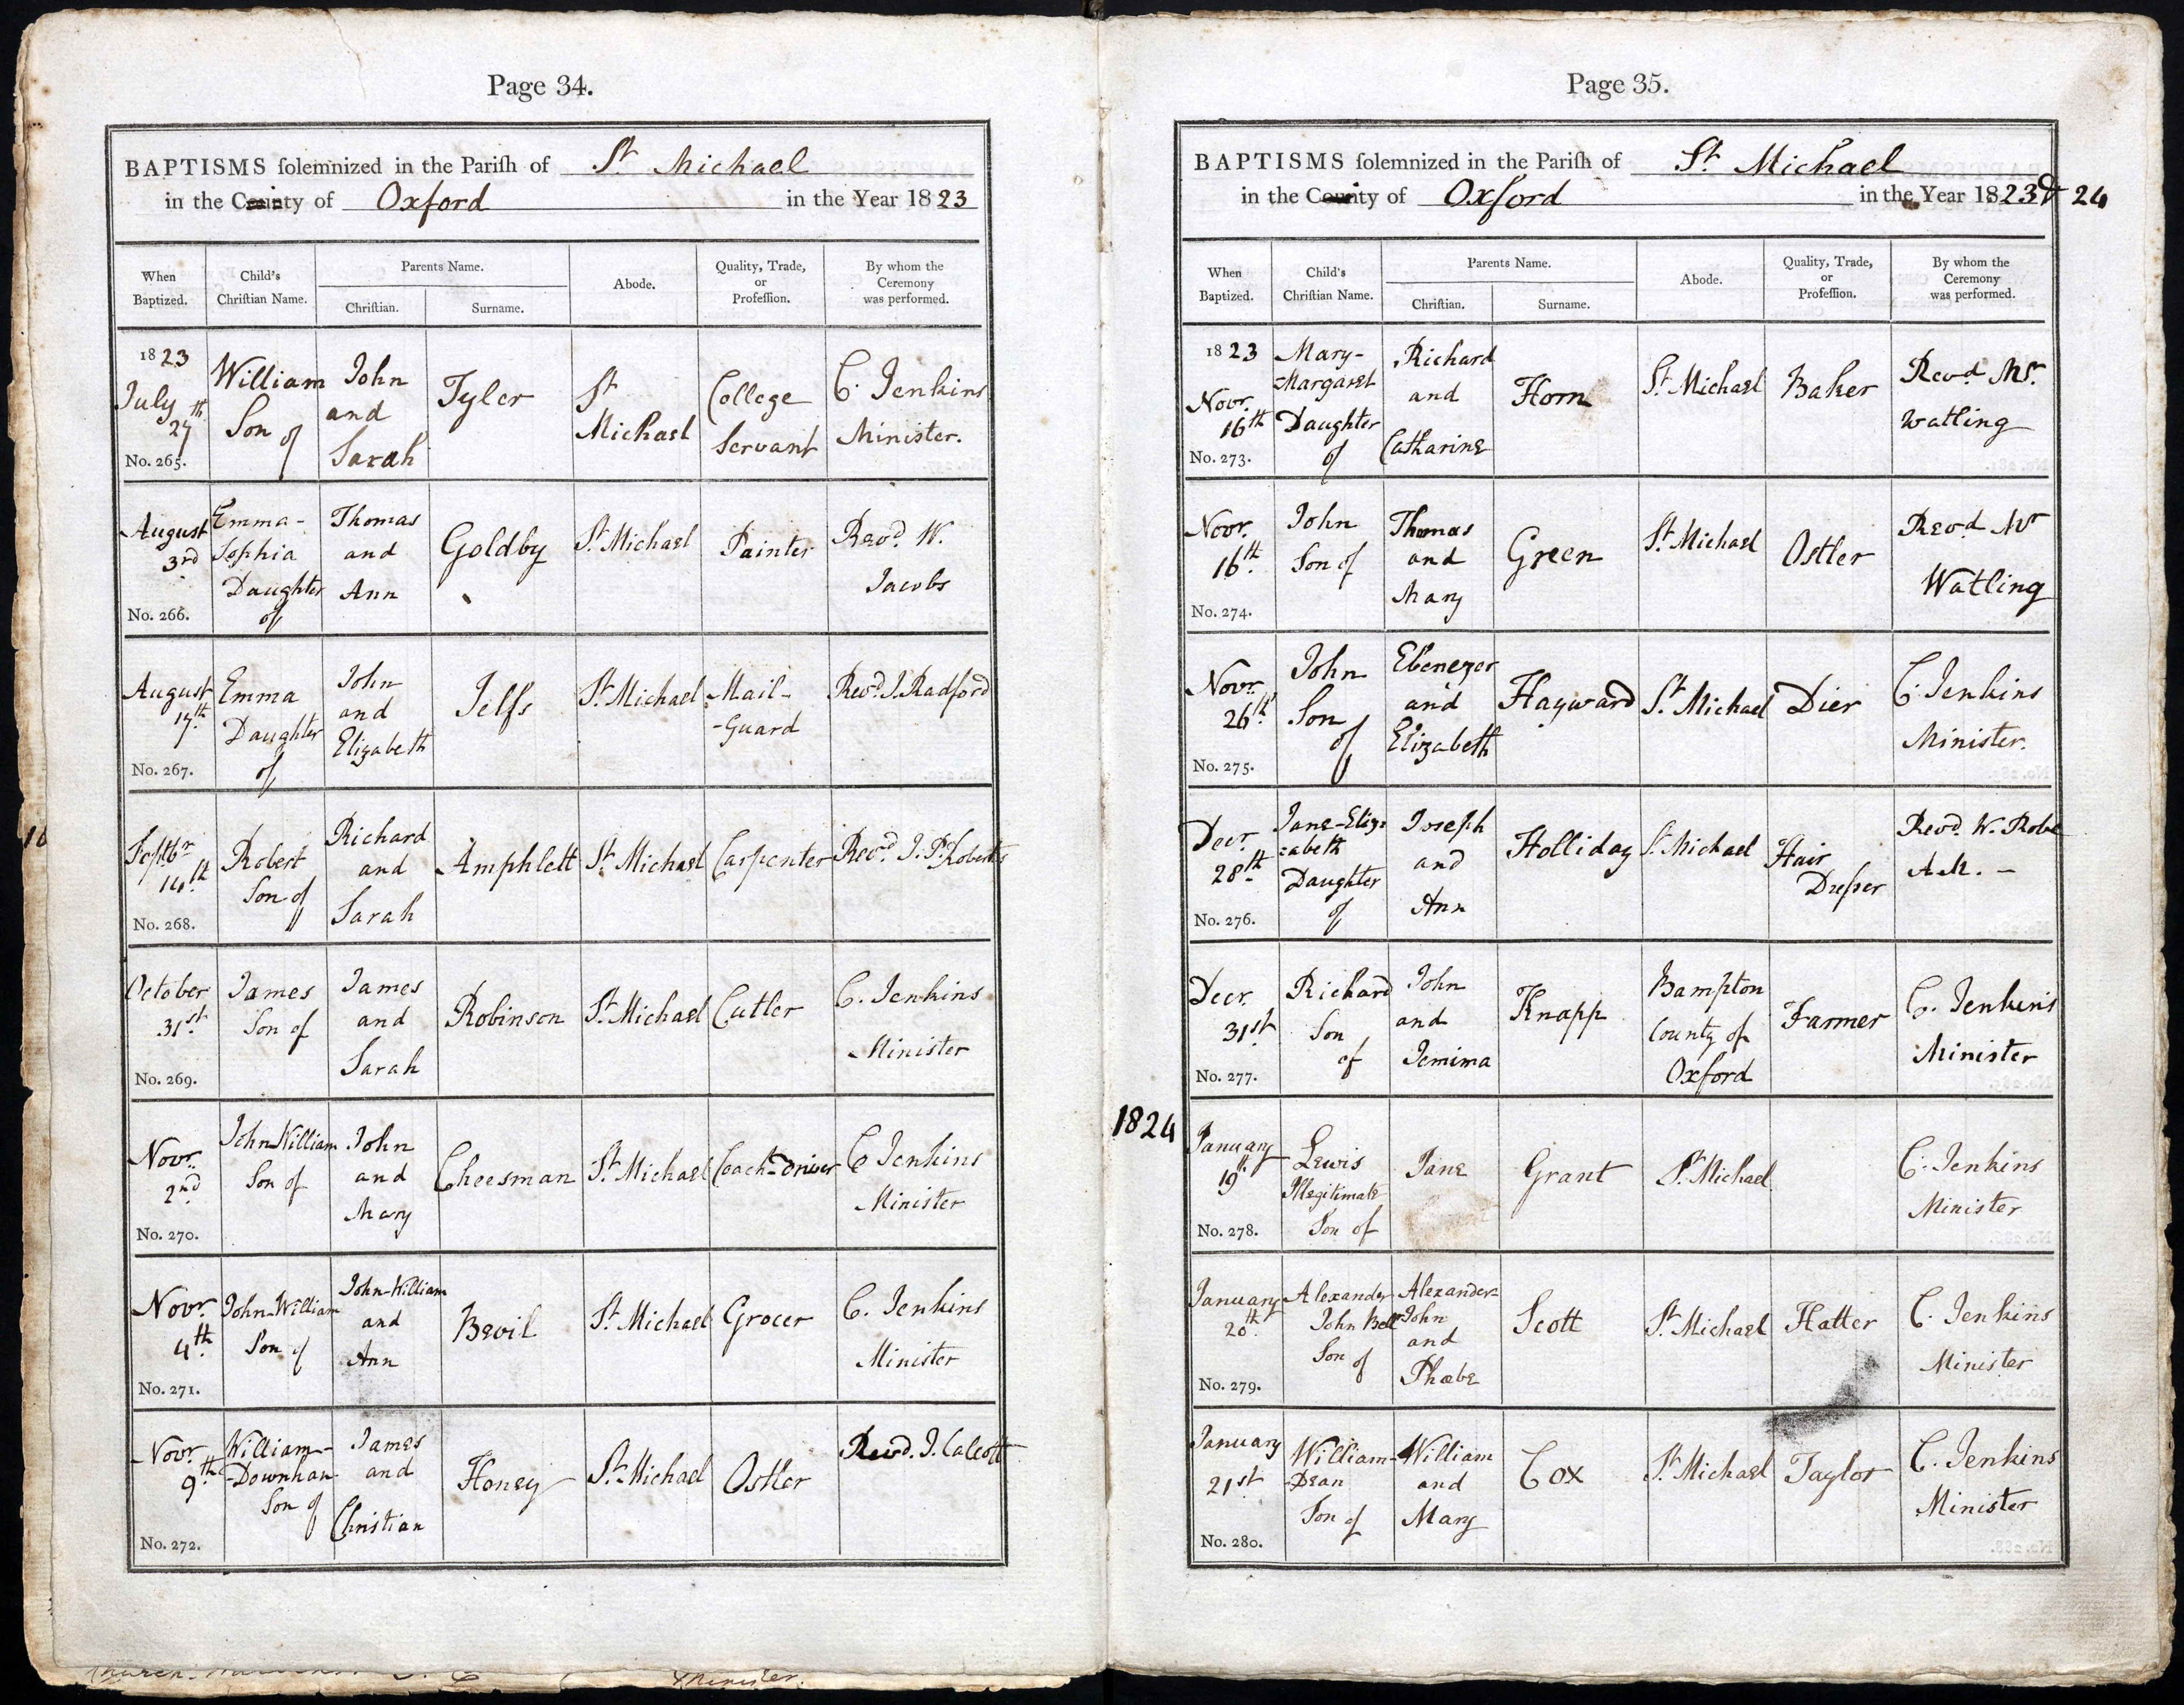 Page 34.
BAPTISMS ſolemnized in the Pariſh of St Michael
in the City of Oxford in the Year 1823
When Baptized.
Child's Chriſtian Name.
Parents Name.
Chriſtian.
Surname.
Abode.
Quality, Trade, or Profeſſion.
By whom the Ceremony was performed.
1823
July 27th
No. 265.
William Son of
John and Sarah
Tyler
St Michael
College Servant
C. Jenkins Minister.
August 3rd
No. 266.
Emma-Sophia Daughter of
Thomas and Ann
Goldby
St Michael
Painter
Revd. W. Jacobs
August 17th
No. 267.
Emma Daughter of
John and Elizabeth
Jelfs
St Michael
Mail-Guard
Revd. J. Radford
Septbr 14th
No. 268.
Robert Son of
Richard and Sarah
Amphlett
St Michael
Carpenter
Revd. J. P. Roberts
October 31st
No. 269.
James Son of
James and Sarah
Robinson
St Michael
Cutler
C. Jenkins Minister
Novr. 2nd
No. 270.
John William Son of
John and Mary
Cheesman
St Michael
Coach-Driver
C Jenkins Minister
Novr. 4th
No. 271.
John-William Son of
John-William and Ann
Bevil
St Michael
Grocer
C. Jenkins Minister
Novr. 9th
No. 272.
William-Downhan Son of
James and Christian
Honey
St Michael
Ostler
Revd. J. Calcott
Minister.
Page 35.
BAPTISMS ſolemnized in the Pariſh of St Michael
in the City of Oxford in the Year 1823 & 24
When Baptized.
Child's Chriſtian Name.
Parents Name.
Chriſtian.
Surname.
Abode.
Quality, Trade, or Profeſſion.
By whom the Ceremony was performed.
1823
Novr. 16th
No. 273.
Mary-Margaret Daughter of
Richard and Catharine
Horn
St Michael
Baker
Revd Mr. Watling
Novr. 16th
No. 274.
John Son of
Thomas and Mary
Green
St Michael
Ostler
Revd Mr Watling
Novr. 26th
No. 275.
John Son of
Ebenezer and Elizabeth
Hayward
St Michael
Dier
C. Jenkins Minister.
Decr. 28th
No. 276.
Jane-Eliz:abeth Daughter of
Joseph and Ann
Holliday
St Michael
Hair Dreſser
Revd. W. Robe A.M. -
Decr. 31st
No. 277.
Richard Son of
John and Jemima
Knapp
Bampton County of Oxford
Farmer
C. Jenkins Minister
1824
January 19th
No. 278.
Lewis Illegitimate Son of
Jane
Grant
St Michael
C. Jenkins Minister
January 20th
No. 279.
Alexander John Bell Son of
Alexander-John and Phœbe
Scott
St Michael
Hatter
C. Jenkins Minister
January 21st
No. 280.
William-Dean Son of
William and Mary
Cox
St Michael
Taylor
C. Jenkins Minister